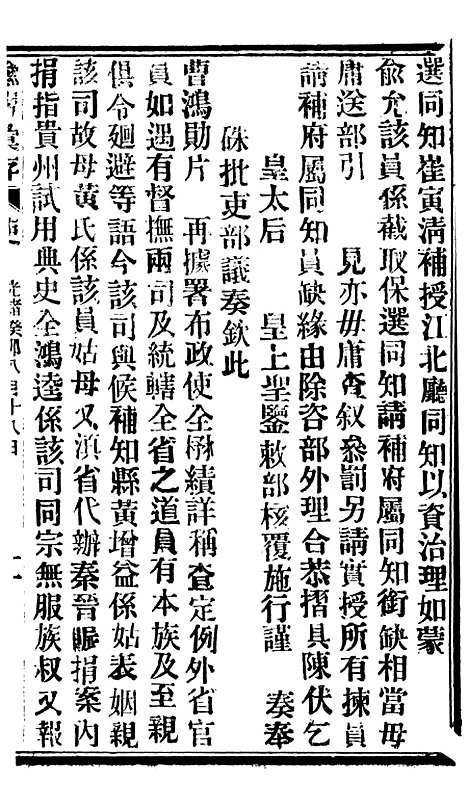 選同知崔寅清補授江北廳同知以資治理如蒙
俞允該員係截取保選同知請補府屬同知銜缺相當毋
庸送部引　見亦毋庸查敘叅罰另請實授所有揀員
請補府屬同知員缺緣由除咨部外理合恭摺具陳伏乞
皇太后　皇上聖鑒敕部核覆施行謹　奏奉
硃批吏部議奏欽此
曹鴻勛片　再據署布政使全楙績詳稱查定例外省官
員如遇有督撫兩司及統轄全省之道員有本族及至親
俱令迴避等語今該司與候補知縣黃增益係姑表姻親
該司故母黃氏係該員姑母又滇省代辦秦晉賑捐案內
捐指貴州試用典史全鴻逵係該司同宗無服族叔又報
光緒癸卯八月十八日